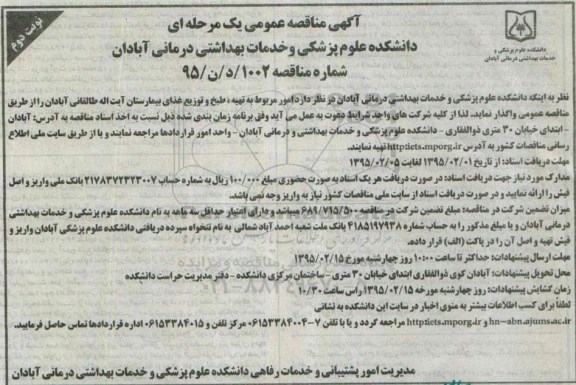 نوبت دوم
آگهی مناقصه عمومی یک مرحله ای
دانشکده علوم پزشکی وخدمات بهداشتی درمانی آبادان
شماره مناقصه ۱۰۰۲/د/ن/۹۵
دانشکده علوم پزشکی و
خدمات بهداشتی درمانی آبادان
نظر به اینکه دانشکده علوم پزشکی و خدمات بهداشتی درمانی آبادان در نظر دارد امور مربوط به تهیه ، طبخ و توزیع غذای بیمارستان آیت اله طالقانی آبادان را از طریق
مناقصه عمومی واگذار نماید. لذا از کلیه شرکت های واجد شرایط دعوت به عمل می آید وفق برنامه زمان بندی شده ذیل نسبت به اخذ اسناد مناقصه به آدرس: آبادان
- ابتدای خیابان ۳۰ متری ذوالفقاری - دانشکده علوم پزشکی و خدمات بهداشتی و درمانی آبادان - واحد امور قراردادها مراجعه نمایند و یا از طریق سایت ملی اطلاع
رسانی مناقصات کشور به آدرس http:iets.mporg.ir تهیه نمایند.
مهلت دریافت اسناد: از تاریخ ۱۳۹۵/۰۲/۰۱ لغایت ۱۳۹۵/۰۲/۰۵
مدارک مورد نیاز جهت دریافت اسناد: در صورت دریافت هر یک اسناد به صورت حضوری مبلغ ۱۰۰/۰۰۰ ریال به شماره حساب ۲۱۷۸۳۷۲۳۲۳۰۰۷ بانک ملی واریز و اصل
فیش را ارائه نمایید و در صورت دریافت اسناد از سایت ملی مناقصات کشور نیاز به واریز وجه نمی باشد.
میزان تضمین شرکت در مناقصه: مبلغ تضمین شرکت در مناقصه ۶۸۹/۷۱۵/۵۰۰ میباشد و دارای اعتبار حداقل سه ماهه به نام دانشکده علوم پزشکی و خدمات بهداشتی
درمانی آبادان و یا مبلغ مذکور را به حساب شماره ۴۱۸۵۱۹۷۹۳۸ بانک ملت شعبه احمد آباد شمالی به نام تنخواه سپرده دریافتی دانشکده علوم پزشکی آبادان واریز و
فیش تهیه و اصل آن را در پاکت (الف) قرار داده.
مهلت ارسال پیشنهادات: حداکثر تا ساعت ۱۰:۰۰ روز چهارشنبه مورخ ۱۳۹۵/۰۲/۱۵
محل تحویل پیشنهادات: آبادان کوی ذوالفقاری ابتدای خیابان ۳۰ متری - ساختمان مرکزی دانشکده - دفتر مدیریت حراست دانشکده
زمان گشایش پیشنهادات: روز چهارشنبه مورخه ۱۳۹۵/۰۲/۱۵ راس ساعت ۱۰/۳۰
لطفاً برای کسب اطلاعات بیشتر به منوی اخبار در سایت این دانشکده به نشانی
hn-abn.ajums.ac.ir و http:iets.mporg.ir مراجعه گردد و یا با تلفن ۷-۰۶۱۵۳۳۸۴۰۰۴ مرکز تلفن و ۰۶۱۵۳۳۸۴۰۱۵ اداره قراردادها تماس حاصل فرمایید.
مدیریت امور پشتیبانی و خدمات رفاهی دانشکده علوم پزشکی و خدمات بهداشتی درمانی آبادان